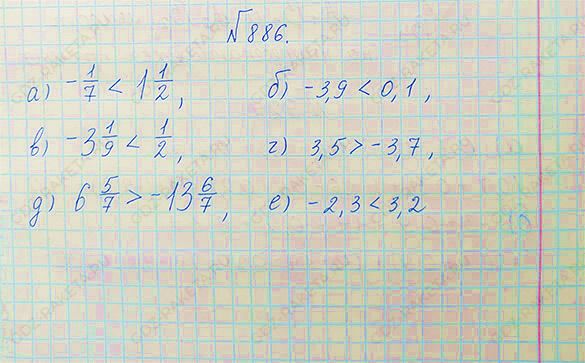 №886.
а) -1/7 < 1 1/2, б) -3,9 < 0,1,
в) -3 1/9 < 1/2, г) 3,5 > -3,7,
д) 6 5/7 > -13 6/7, е) -2,3 < 3,2
GDZ-RAKETA.RU